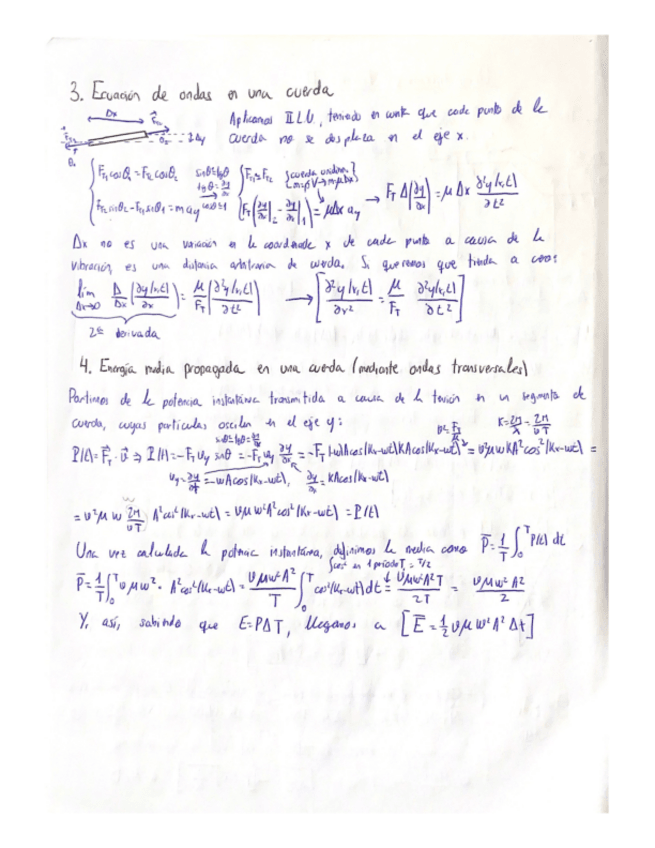 3. Ecuación de ondas en una cuerda
Δx
Aplicamos II L.N, teniendo en cuenta que cada punto de la
cuerda no se desplaza en el eje x.
F_T1 cosθ1 = F_T2 cosθ2
F_T2 sinθ2 - F_T1 sinθ1 = m a_y
F_T1 = F_T2
F_T(∂y/∂x|_2 - ∂y/∂x|_1) = μΔx a_y → F_T Δ(∂y/∂x) = μ Δx ∂²y(x,t)/∂t²
Δx no es una variación en la coordenada x de cada punto a causa de la
vibración es una distancia arbitraria de cuerda. Si queremos que tienda a cero:
lim Δx→0 Δ/Δx (∂y(x,t)/∂x) = μ/F_T (∂²y(x,t)/∂t²) → [∂²y(x,t)/∂x² = μ/F_T ∂²y(x,t)/∂t²]
2ª derivada
4. Energía media propagada en una cuerda (mediante ondas transversales)
Partimos de la potencia instantánea transmitida a causa de la tensión en un segmento de
cuerda, cuyas partículas oscilan en el eje y:
K = 2π/λ = 2π/vT
P(t) = F_T · v ⇒ P(t) = -F_T v_y sinθ = -F_T v_y ∂y/∂x = -F_T(-wAcos(Kx-wt)KAcos(Kx-wt)) = v²μwKA²cos²(Kx-wt) =
v_y = ∂y/∂t = -wAcos(Kx-wt), ∂y/∂x = KAcos(Kx-wt)
= v²μ w 2π/vT A²cos²(Kx-wt) = vμw²A²cos²(Kx-wt) = P(t)
Una vez calculada la potencia instantánea, definimos la media como P̄ = 1/T ∫₀ᵀ P(t) dt
∫cos² en 1 período T = T/2
P̄ = 1/T ∫₀ᵀ vμw² · A²cos²(Kx-wt) = vμw²A²/T ∫₀ᵀ cos²(Kx-wt)dt = vμw²A²T/2T = vμw²A²/2
Y, así, sabiendo que E=PΔT, llegamos a [Ē = 1/2 vμw²A²Δt]